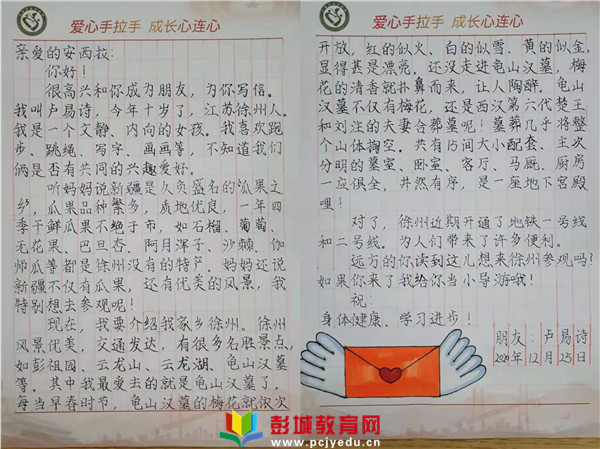 爱心手拉手 成长心连心
亲爱的安西拉:
你好!
很高兴和你成为朋友,为你写信。
我叫卢易诗,今年十岁了,江苏徐州人。
我是一个文静、内向的女孩。我喜欢跑
步、跳绳、写字、画画等,不知道我们
俩是否有共同的兴趣爱好。
听妈妈说新疆是久负盛名的“瓜果之
乡”,瓜果品种繁多,质地优良,一年四
季干鲜瓜果不绝于市,如石榴、葡萄、
无花果、巴旦杏、阿月浑子、沙棘、伽
师瓜等都是徐州没有的特产。妈妈还说
新疆不仅有瓜果,还有优美的风景,我
特别想去参观呢!
现在,我要介绍我家乡徐州。徐州
风景优美,交通发达,有很多名胜景点,
如彭祖园、云龙山、云龙湖、龟山汉墓
等。其中我最爱去的就是龟山汉墓了。
每当早春时节,龟山汉墓的梅花就依次
爱心手拉手 成长心连心
开放,红的似火、白的似雪、黄的似金,
显得甚是漂亮。还没走进龟山汉墓,梅
花的清香就扑鼻而来,让人陶醉。龟山
汉墓不仅有梅花,还是西汉第六代楚王
和刘注的夫妻合葬墓呢!墓葬几乎将整
个山体掏空。共有15间大小配套、主次
分明的墓室、卧室、客厅、马厩、厨房
一应俱全,井然有序,是一座地下宫殿
哩!
对了,徐州近期开通了地铁一号线
和二号线。为人们带来了许多便利。
远方的你读到这儿想来徐州参观吗?
如果你来了我给你当小导游哦!
祝:
身体健康、学习进步!
朋友:卢易诗
2020年12月25日
彭城教育网
www.pcjyedu.cn